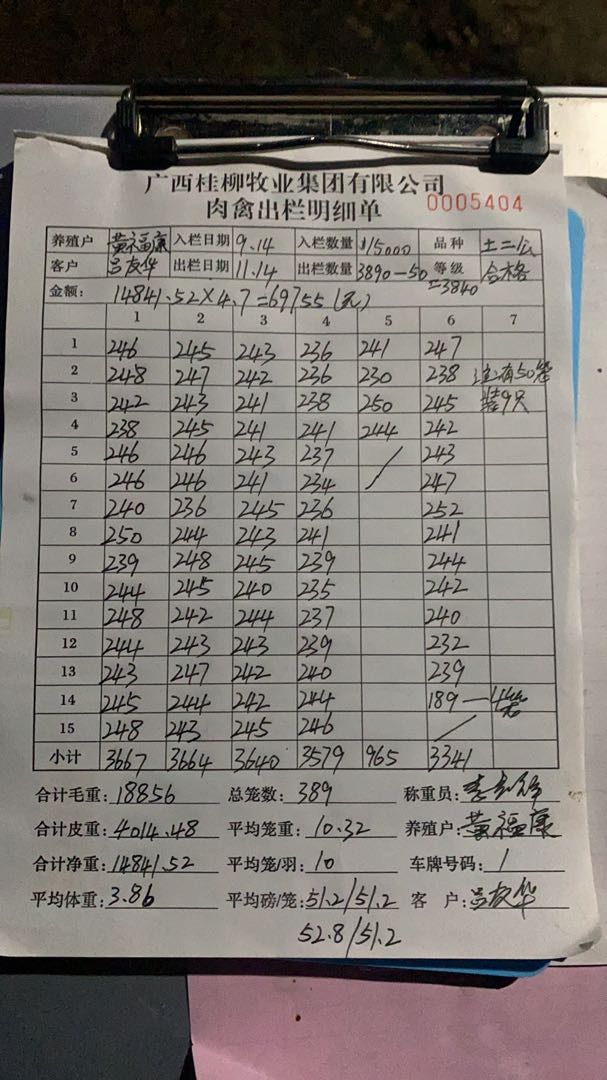 广西桂柳牧业集团有限公司
肉禽出栏明细单 0005404
养殖户 黄福康 入栏日期 9.14 入栏数量 15000 品种 土二公
客户 吕友华 出栏日期 11.14 出栏数量 3890-50 等级 合格
=3840
金额: 14841.52×4.7=69755(元)
1 2 3 4 5 6 7
1 246 245 243 236 241 247
2 248 247 242 236 230 238 注:有50笼
3 242 243 241 238 250 245 装9只
4 238 245 241 241 244 242
5 246 246 243 237 / 243
6 246 246 241 234 247
7 240 236 245 236 252
8 250 244 243 241 241
9 239 248 245 239 244
10 244 245 240 235 242
11 248 242 244 237 240
12 244 243 243 239 232
13 243 247 242 240 239
14 245 244 242 244 189 — 4笼
15 248 243 245 246 /
小计 3667 3664 3640 3579 965 3341
合计毛重: 18856 总笼数: 389 称重员:
合计皮重: 4014.48 平均笼重: 10.32 养殖户: 黄福康
合计净重: 14841.52 平均笼/羽: 10 车牌号码: 1
平均体重: 3.86 平均磅/笼: 51.2/51.2 客户: 吕友华
52.8/51.2